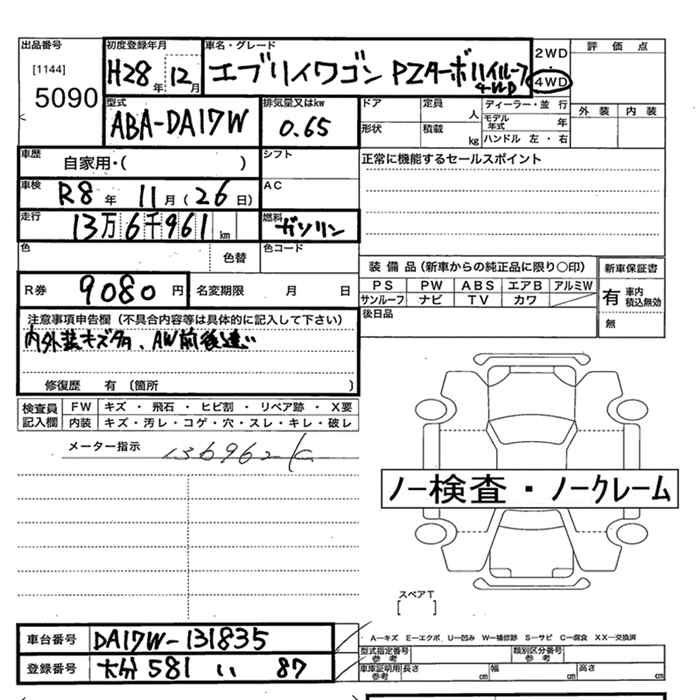 出品番号 初度登録年月 車名・グレード 2WD ・ 4WD 評価点
[1144] 5090 H28年 12月 エブリイワゴン PZターボハイルーフ 4WD 外装 内装
型式 排気量又はkw ドア 定員 人 ディーラー・並 行
ABA-DA17W 0.65 形状 積載 kg モデル年式 年 ハンドル 左・右
車歴 自家用・( ) シフト 正常に機能するセールスポイント
車検 R8年 11月(26日) AC
走行 13万6千961km 燃料 ガソリン
色 色替 色コード
装備品(新車からの純正品に限り〇印) 新車保証書
R券 9080円 名変期限 月 日 PS PW ABS エアB アルミW 有 車内 積込無効
サンルーフ ナビ TV カワ
後日品 無
注意事項申告欄(不具合内容等は具体的に記入して下さい)
内外装キズ多、AW前後違い
修復歴 有〔箇所 〕
検査員記入欄 FW キズ・飛石・ヒビ割・リペア跡・X要
内装 キズ・汚レ・コゲ・穴・スレ・キレ・破レ
メーター指示 136962
ノー検査・ノークレーム
スペアT
[ ]
車台番号 DA17W-131835 A―キズ E―エクボ U―凹み W―補修跡 S―サビ C―腐食 XX―交換済
型式指定番号 参考 類別区分番号 参考
登録番号 大分 581 い 87 車庫証明用 参考 長さ cm 幅 cm 高さ cm